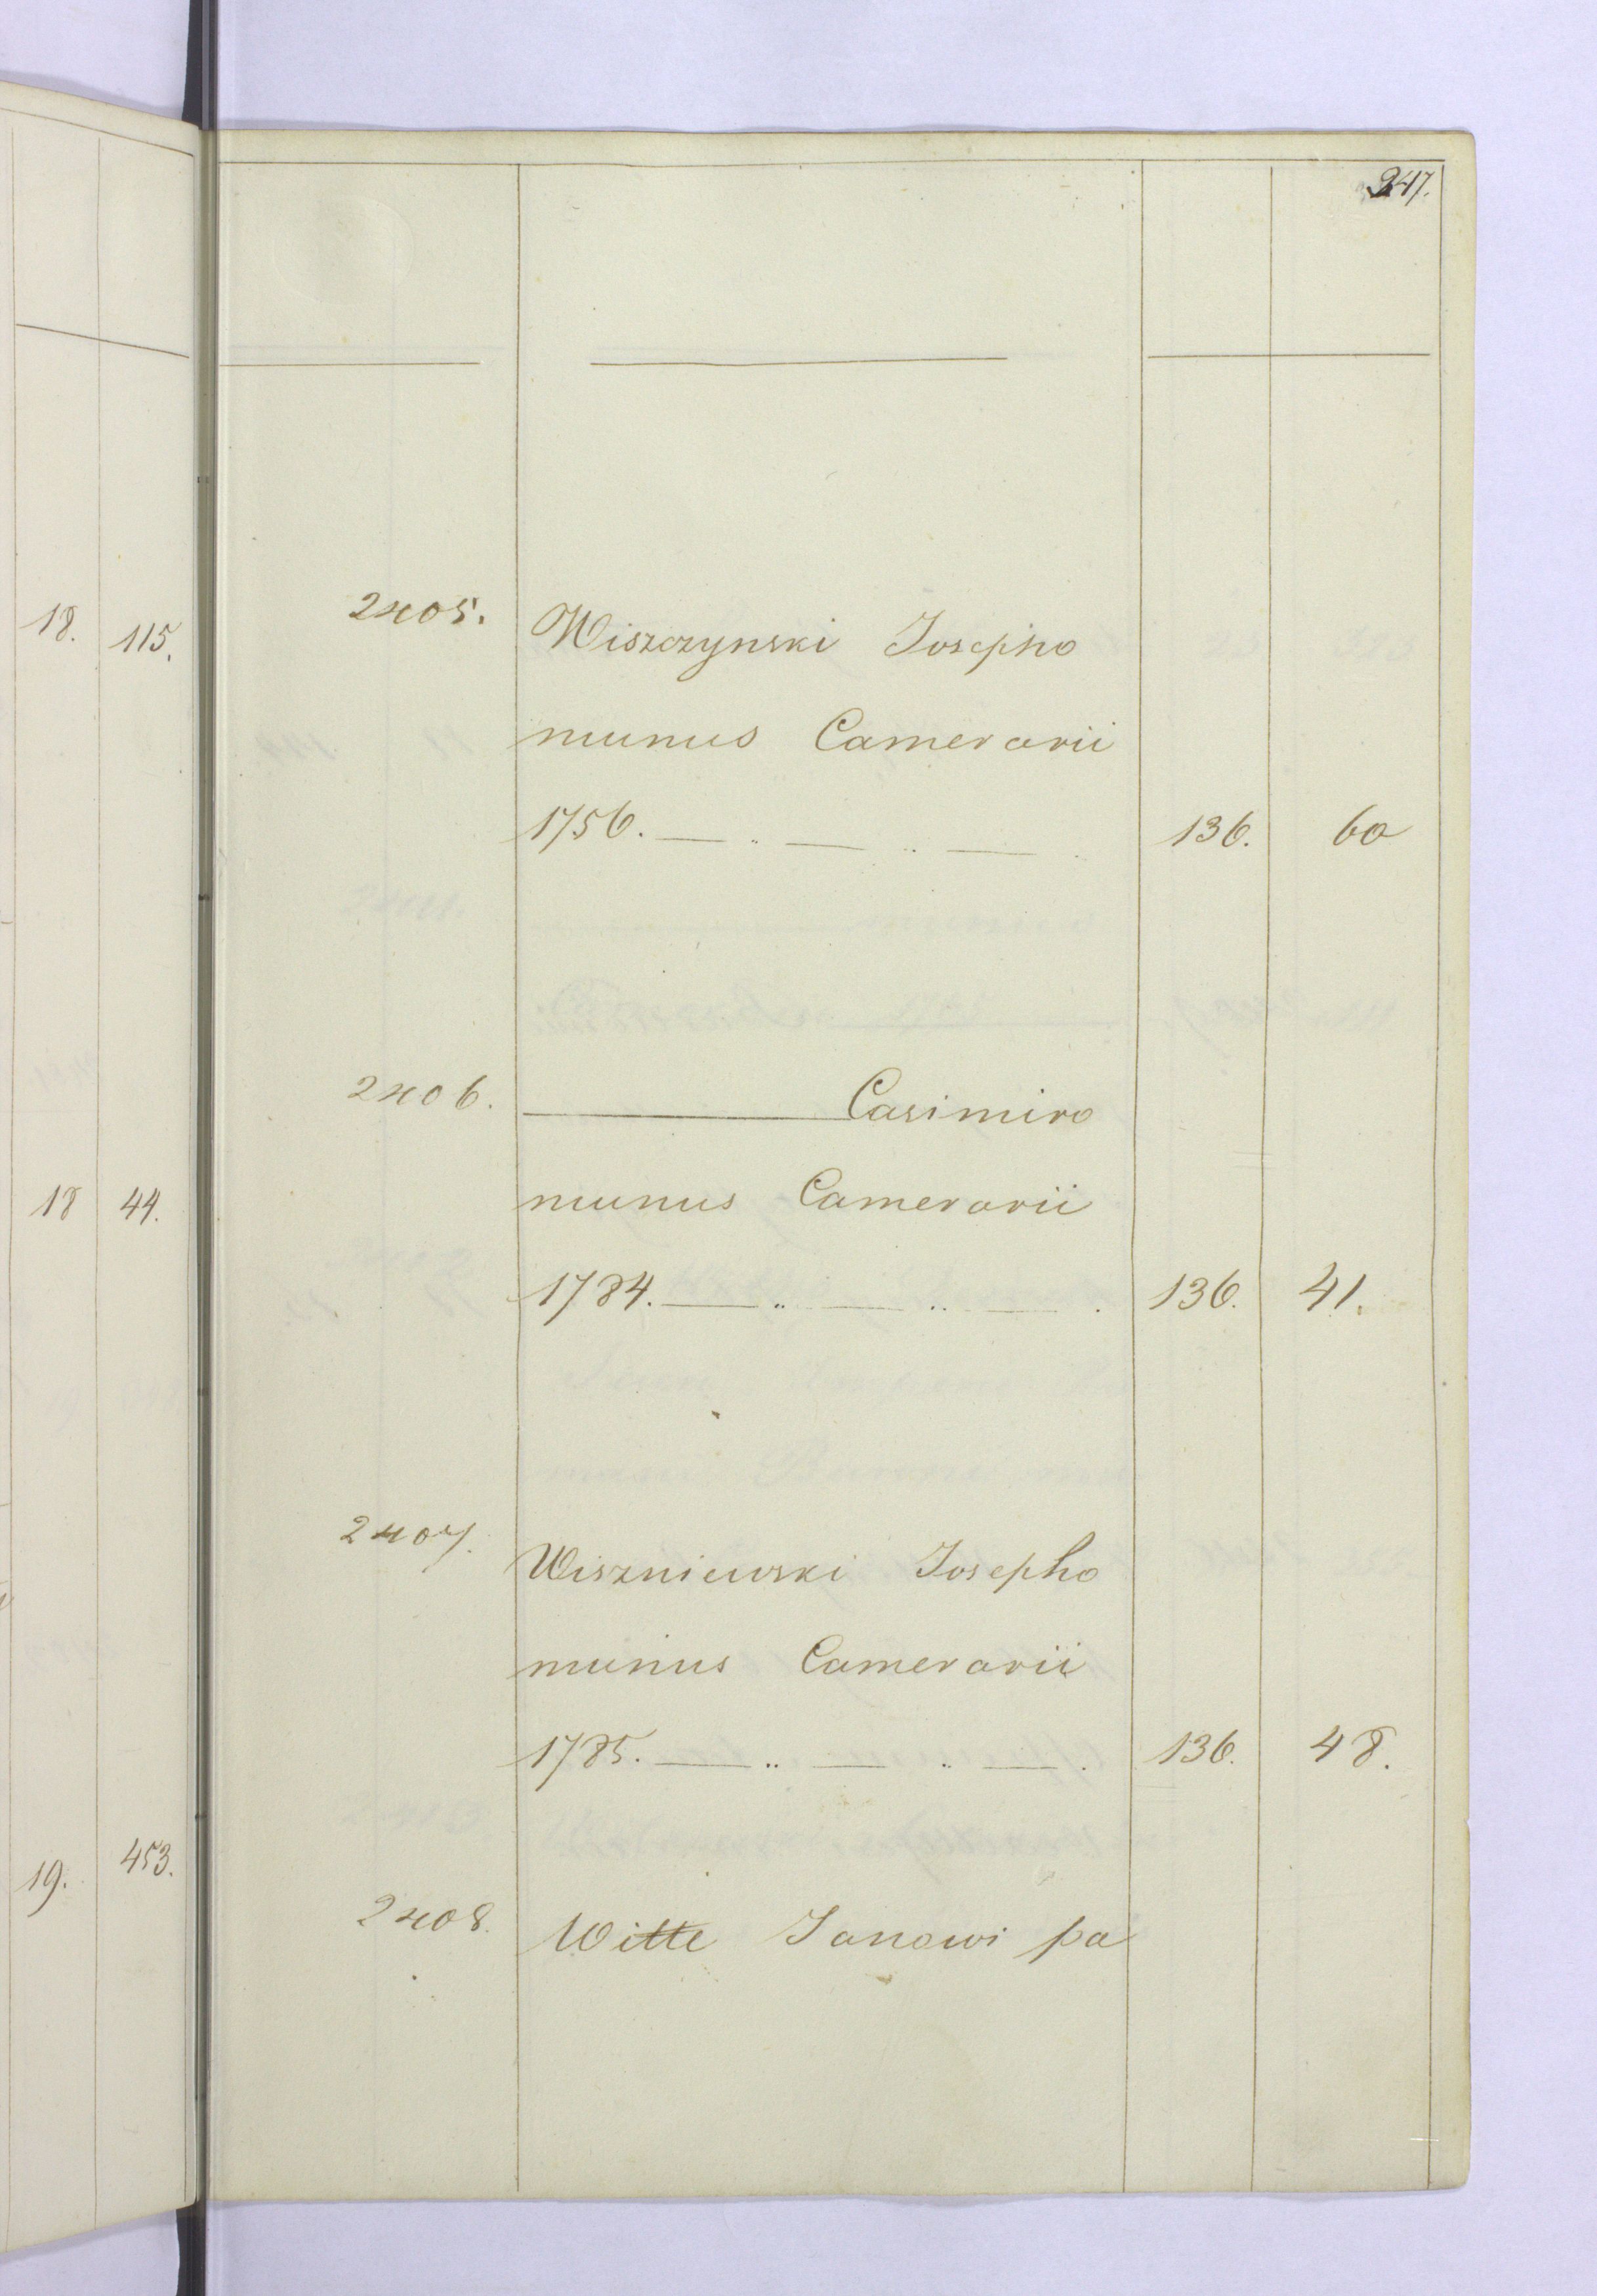 247.
18. 115.
18 44.
19. 453.
2405. Wiszczynski Josepho
munus Camerarii
1756. — .. — .. — . 136. 60
2406. ——— Casimiro
munus Camerarii
1784. — .. — .. — . 136. 41.
2407. Wiszniewski Josepho
munus Camerarii
1785. — .. — .. — . 136. 48.
2408. Witte Janowi pa